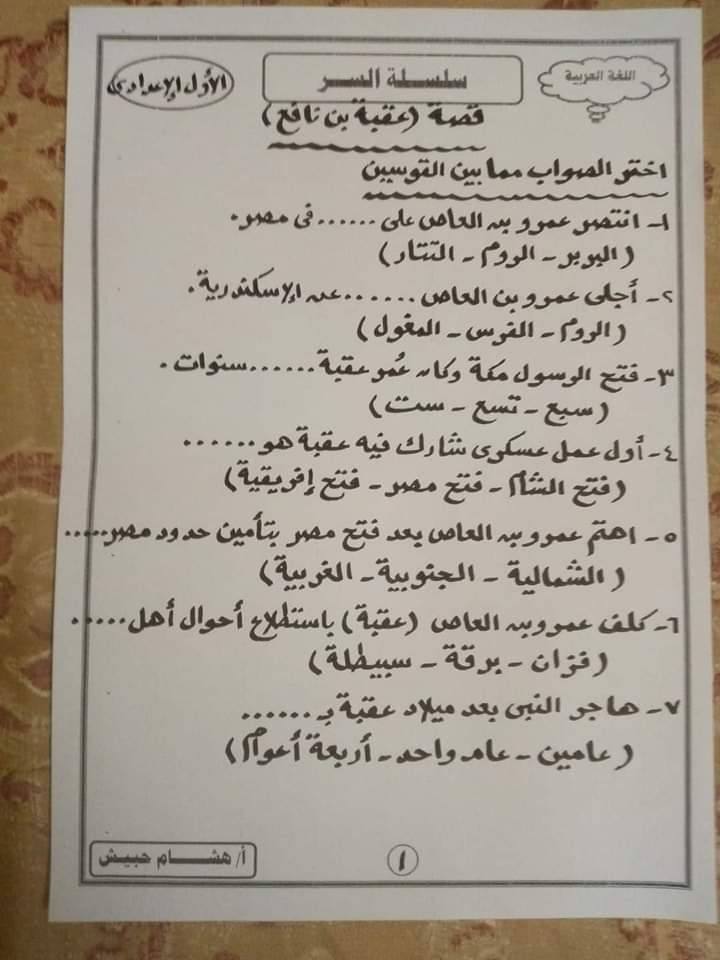 اللغة العربية
سلسلة السر
الأول الإعدادى
قصة (عقبة بن نافع)
اختر الصواب مما بين القوسين
١- انتصر عمرو بن العاص على ...... فى مصر.
(البربر - الروم - التتار)
٢- أجلى عمرو بن العاص ...... عن الإسكندرية.
(الروم - الفرس - المغول)
٣- فتح الرسول مكة وكان عُمر عقبة ...... سنوات.
(سبع - تسع - ست)
٤- أول عمل عسكرى شارك فيه عقبة هو ......
(فتح الشام - فتح مصر - فتح إفريقية)
٥- اهتم عمرو بن العاص بعد فتح مصر بتأمين حدود مصر .....
(الشمالية - الجنوبية - الغربية)
٦- كلف عمرو بن العاص (عقبة) باستطلاع أحوال أهل .....
(فزان - برقة - سبيطلة)
٧- هاجر النبى بعد ميلاد عقبة بـ ......
(عامين - عام واحد - أربعة أعوام)
١
أ/ هشام حبيش